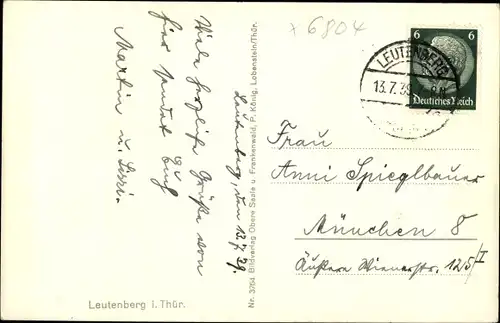 x 6804
6 6
Deutsches Reich
LEUTENBERG
13.7.39
Leutenberg, den 13.7.39.
Viele herzliche Grüße von
hier sendet Euch
Martin u. Lissi.
Nr. 3754 Bildverlag Obere Saale u. Frankenwald, P. König, Lobenstein/Thür.
Frau
Anni Spieglbauer
München 8
Äußere Wienerstr. 125/I
Leutenberg i. Thür.